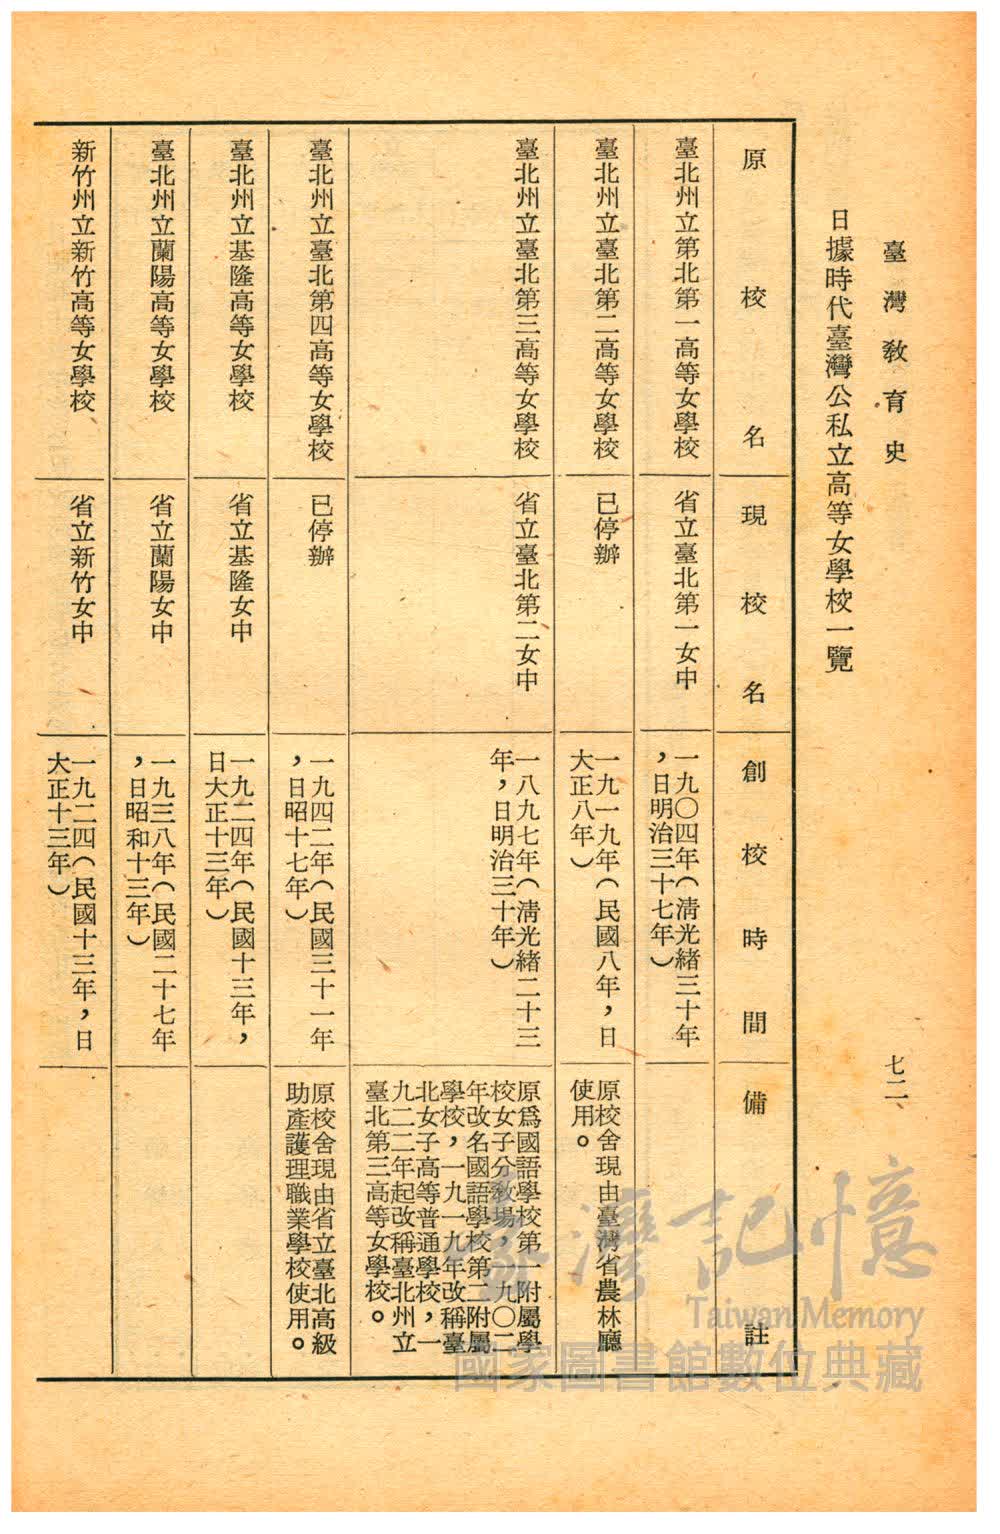 臺灣教育史
七二
日據時代臺灣公私立高等女學校一覽
原校名
現校名
創校時間
備註
臺北州立第北第一高等女學校
省立臺北第一女中
一九〇四年(清光緒三十年
,日明治三十七年)
臺北州立臺北第二高等女學校
已停辦
一九一九年(民國八年,日
大正八年)
原校舍現由臺灣省農林廳
使用。
臺北州立臺北第三高等女學校
省立臺北第二女中
一八九七年(清光緒二十三
年,日明治三十年)
原爲國語學校第一附屬學
校女子分教場,一九〇二
年改名國語學校第二附屬
學校,一九一九年改稱臺
北女子高等普通學校,一
九二二年起改稱臺北州立
臺北第三高等女學校。
臺北州立臺北第四高等女學校
已停辦
一九四二年(民國三十一年
,日昭十七年)
原校舍現由省立臺北高級
助產護理職業學校使用。
臺北州立基隆高等女學校
省立基隆女中
一九二四年(民國十三年,
日大正十三年)
臺北州立蘭陽高等女學校
省立蘭陽女中
一九三八年(民國二十七年
,日昭和十三年)
新竹州立新竹高等女學校
省立新竹女中
一九二四(民國十三年,日
大正十三年)
臺灣記憶
Taiwan Memory
國家圖書館數位典藏